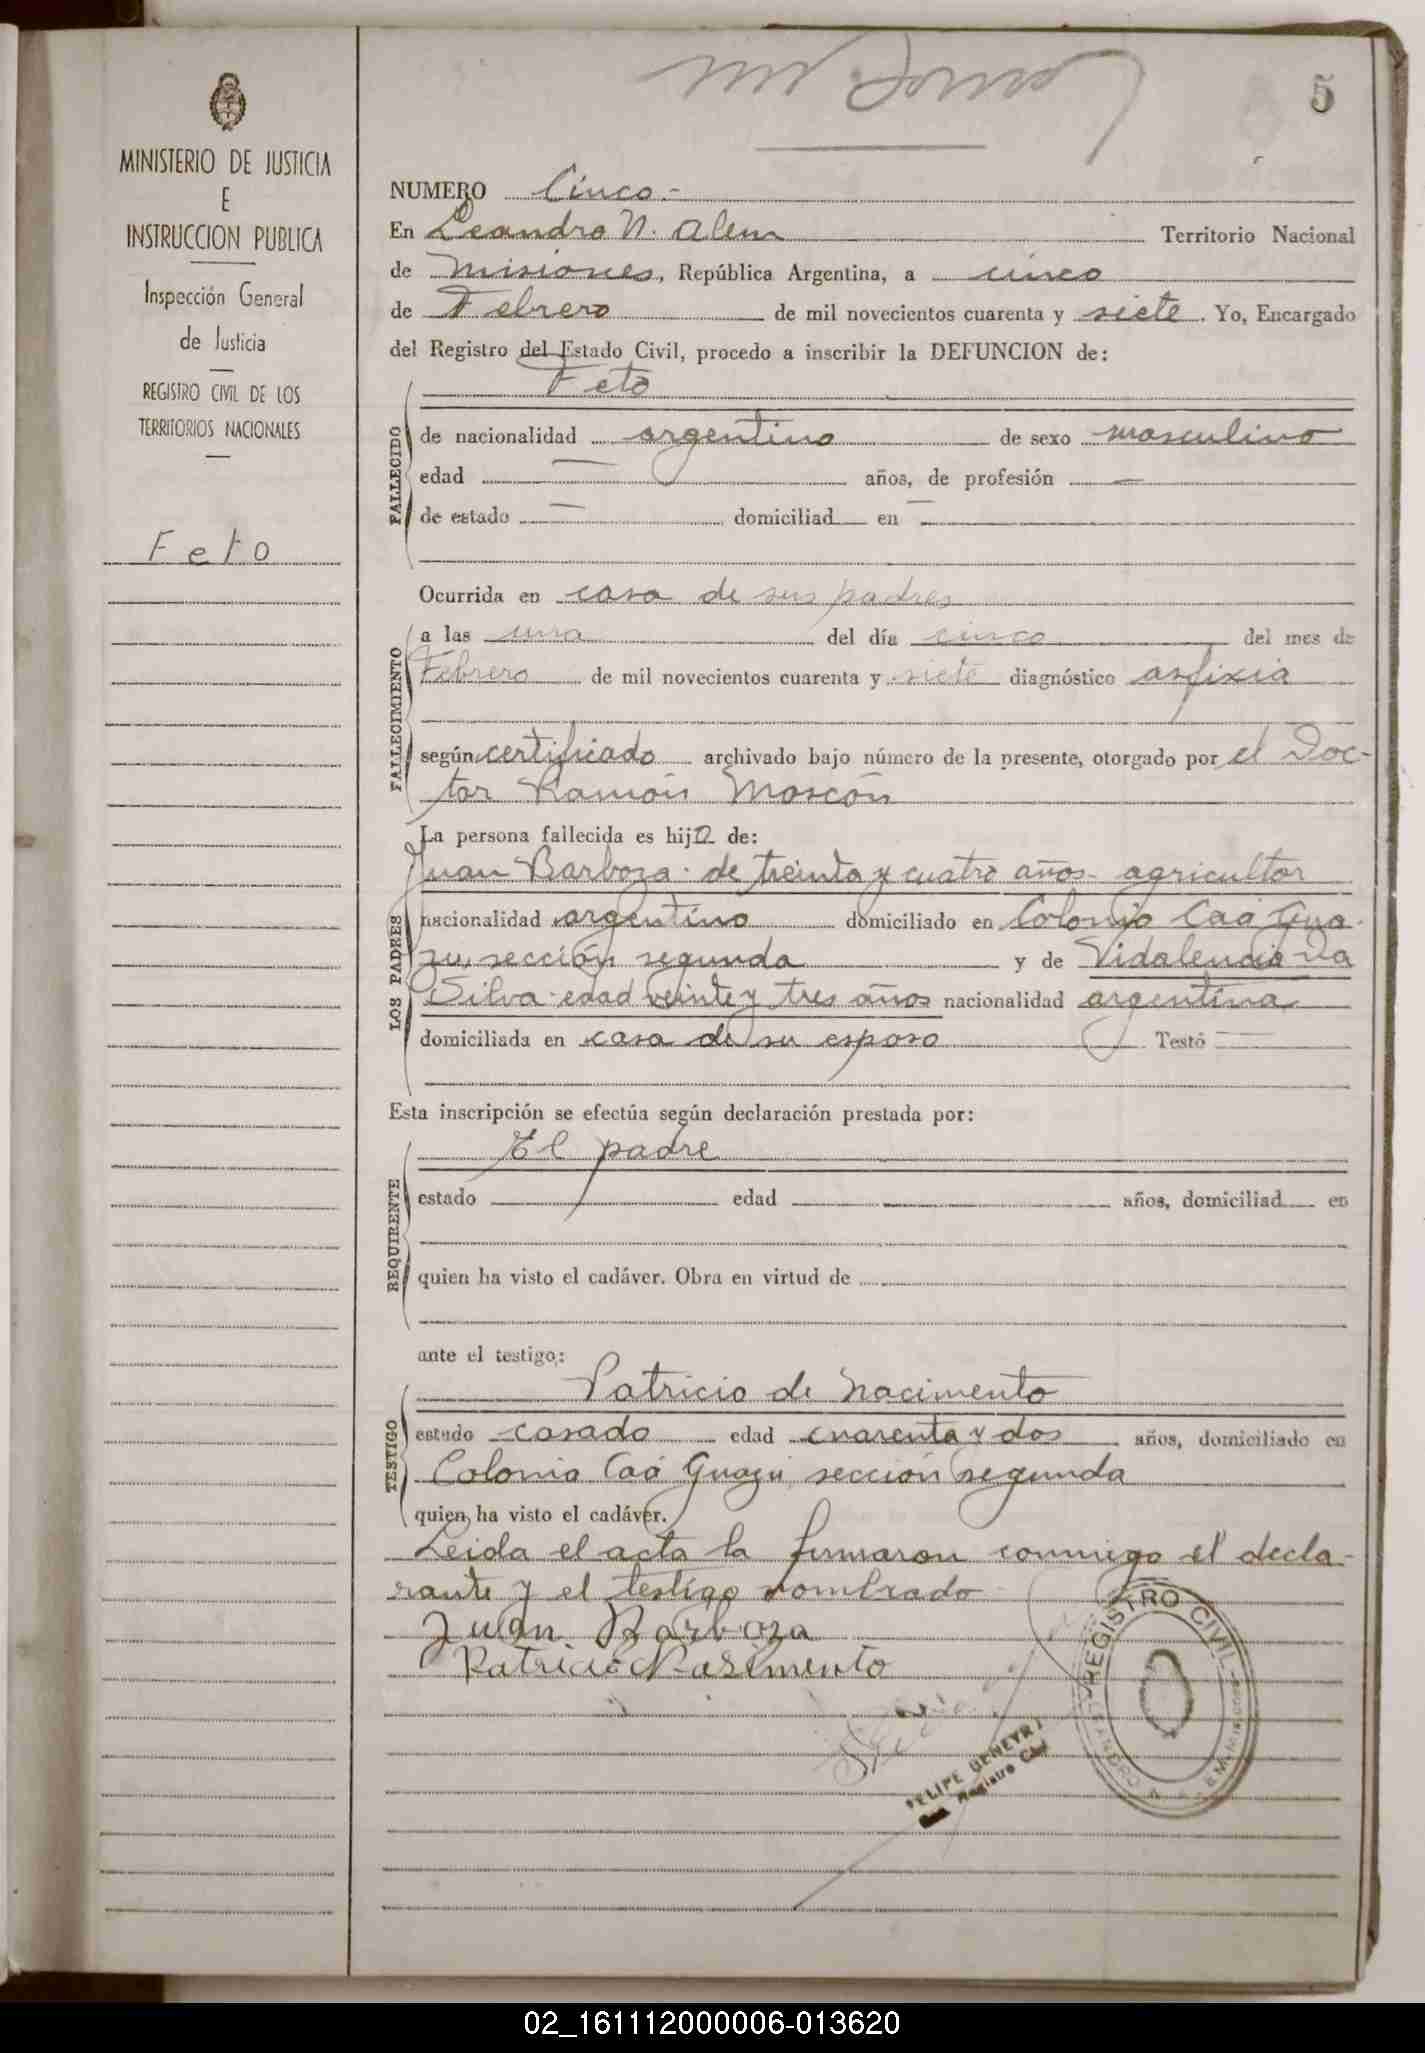 5
MINISTERIO DE JUSTICIA
E
INSTRUCCION PUBLICA
Inspección General
de Justicia
REGISTRO CIVIL DE LOS
TERRITORIOS NACIONALES
Feto
NUMERO Cinco.-
En Leandro N. Alem Territorio Nacional
de Misiones, República Argentina, a cinco
de Febrero de mil novecientos cuarenta y siete. Yo, Encargado
del Registro del Estado Civil, procedo a inscribir la DEFUNCION de:
Feto
FALLECIDO
de nacionalidad argentino de sexo masculino
edad — años, de profesión —
de estado — domiciliad en —
Ocurrida en casa de sus padres
FALLECIMIENTO
a las una del día cinco del mes de
Febrero de mil novecientos cuarenta y siete diagnóstico asfixia
según certificado archivado bajo número de la presente, otorgado por el Doc-
tor Ramón Moscón
La persona fallecida es hijo de:
LOS PADRES
Juan Barboza. de treinta y cuatro años- agricultor
nacionalidad argentino domiciliado en Colonia Caá Gua-
zu, sección segunda y de Vidalencia Da
Silva- edad veinte y tres años nacionalidad argentina
domiciliada en casa de su esposo Testó —
Esta inscripción se efectúa según declaración prestada por:
REQUIRENTE
El padre
estado edad años, domiciliad en
quien ha visto el cadáver. Obra en virtud de
ante el testigo:
TESTIGO
Patricio de Nacimento
estado casado edad cuarenta y dos años, domiciliado en
Colonia Caá Guazú, sección segunda
quien ha visto el cadáver.
Leida el acta la firmaron conmigo el decla-
rante y el testigo nombrado
Juan Barboza
Patricio Nasimento
REGISTRO CIVIL
LEANDRO N.
FELIPE GENEYRI
Registro Civil
02_161112000006-013620